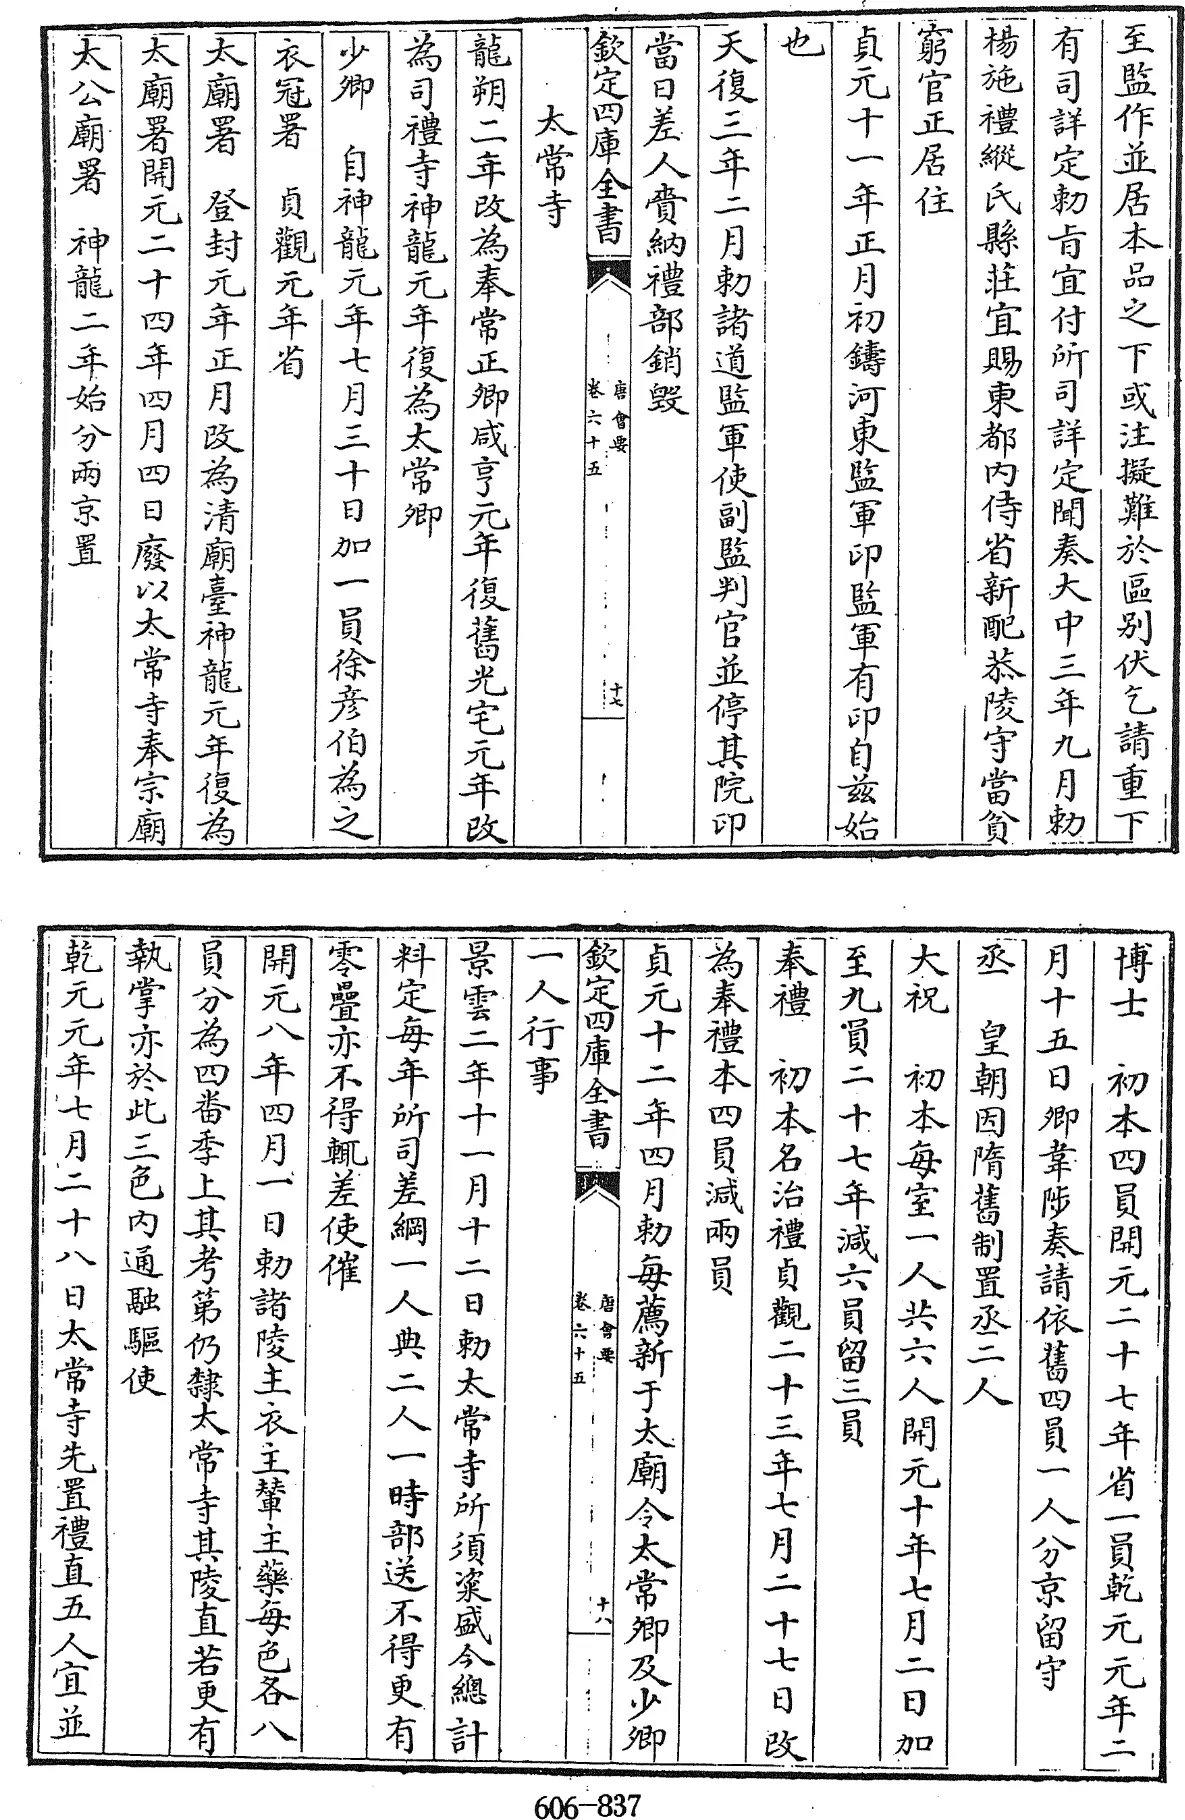 至監作並居本品之下或注擬難於區别伏乞請重下
有司詳定勅㫖宜付所司詳定聞奏大中三年九月勅
楊施禮緱氏縣莊宜賜東都内侍省新配恭陵守當貧
窮官正居住
貞元十一年正月初鑄河東監軍印監軍有印自兹始
也
天復三年二月勅諸道監軍使副監判官並停其院印
當日差人賫納禮部銷毁
欽定四庫全書
唐會要
卷六十五
十七
太常寺
龍朔二年改為奉常正卿咸亨元年復舊光宅元年改
為司禮寺神龍元年復為太常卿
少卿 自神龍元年七月三十日加一員徐彦伯為之
衣冠署 貞觀元年省
太廟署 登封元年正月改為清廟臺神龍元年復為
太廟署開元二十四年四月四日廢以太常寺奉宗廟
太公廟署 神龍二年始分兩京置
博士 初本四員開元二十七年省一員乾元元年二
月十五日卿韋陟奏請依舊四員一人分京留守
丞 皇朝因隋舊制置丞二人
大祝 初本每室一人共六人開元十年七月二日加
至九員二十七年減六員留三員
奉禮 初本名治禮貞觀二十三年七月二十七日改
為奉禮本四員減兩員
貞元十二年四月勅每薦新于太廟令太常卿及少卿
欽定四庫全書
唐會要
卷六十五
十八
一人行事
景雲二年十一月十二日勅太常寺所須粢盛令總計
料定每年所司差綱一人典二人一時部送不得更有
零疊亦不得輒差使催
開元八年四月一日勅諸陵主衣主輦主藥每色各八
員分為四番季上其考第仍隸太常寺其陵直若更有
執掌亦於此三色内通融驅使
乾元元年七月二十八日太常寺先置禮直五人宜並
606-837